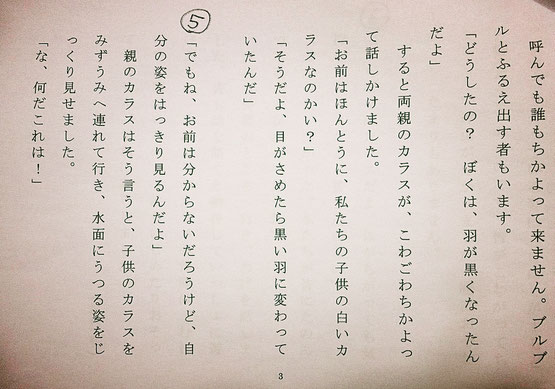 呼んでも誰もちかよって来ません。ブルブ
ルとふるえ出す者もいます。
「どうしたの？　ぼくは、羽が黒くなったん
だよ」
　すると両親のカラスが、こわごわちかよっ
て話しかけました。
「お前はほんとうに、私たちの子供の白いカ
ラスなのかい？」
「そうだよ、目がさめたら黒い羽に変わって
いたんだ」
⑤
「でもね、お前は分からないだろうけど、自
分の姿をはっきり見るんだよ」
　親のカラスはそう言うと、子供のカラスを
みずうみへ連れて行き、水面にうつる姿をじ
っくり見せました。
「な、何だこれは！」
3